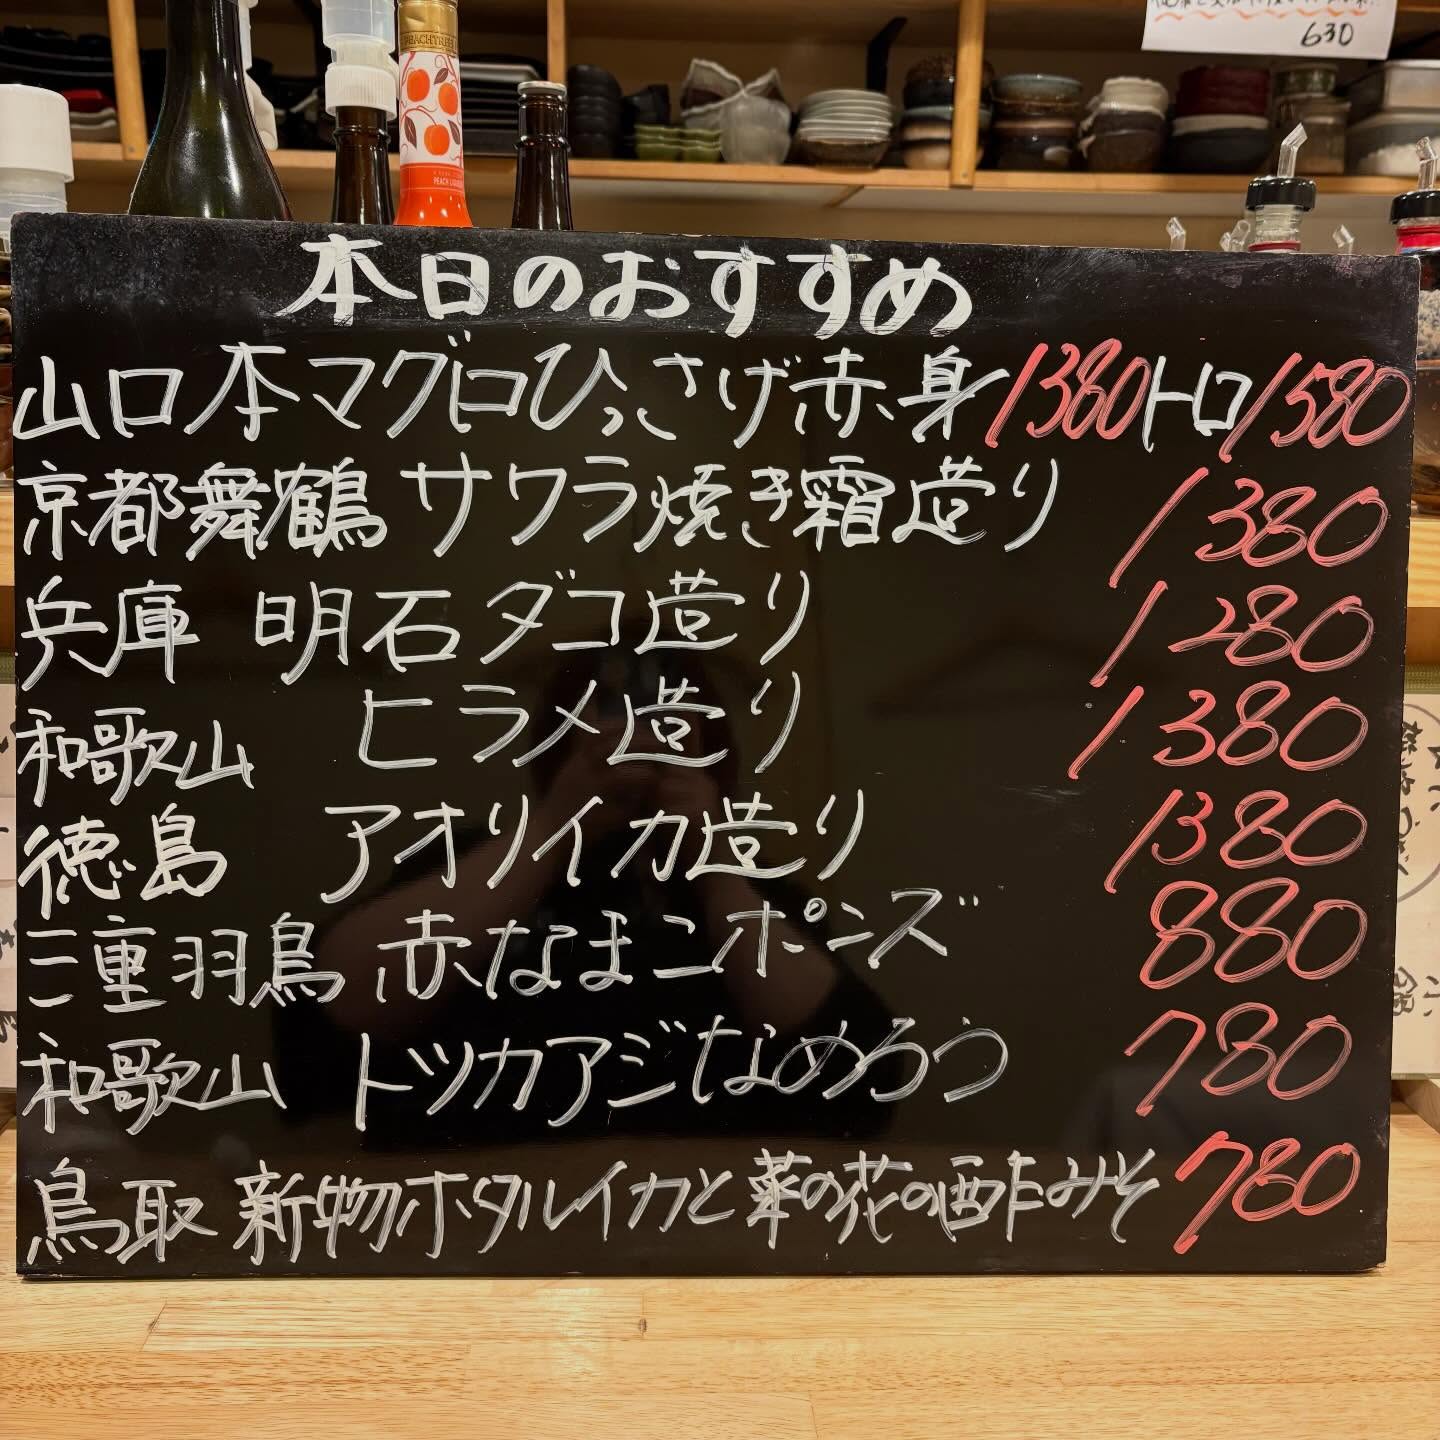 630
PEACHTREE
PEACH LIQUEUR
本日のおすすめ
山口本マグロひっさげ赤身1380トロ1580
京都舞鶴 サワラ焼き霜造り 1380
兵庫 明石ダコ造り 1280
和歌山 ヒラメ造り 1380
徳島 アオリイカ造り 1380
三重羽鳥 赤なまこポンズ 880
和歌山 トツカアジなめろう 780
鳥取 新物ホタルイカと菜の花の酢みそ 780